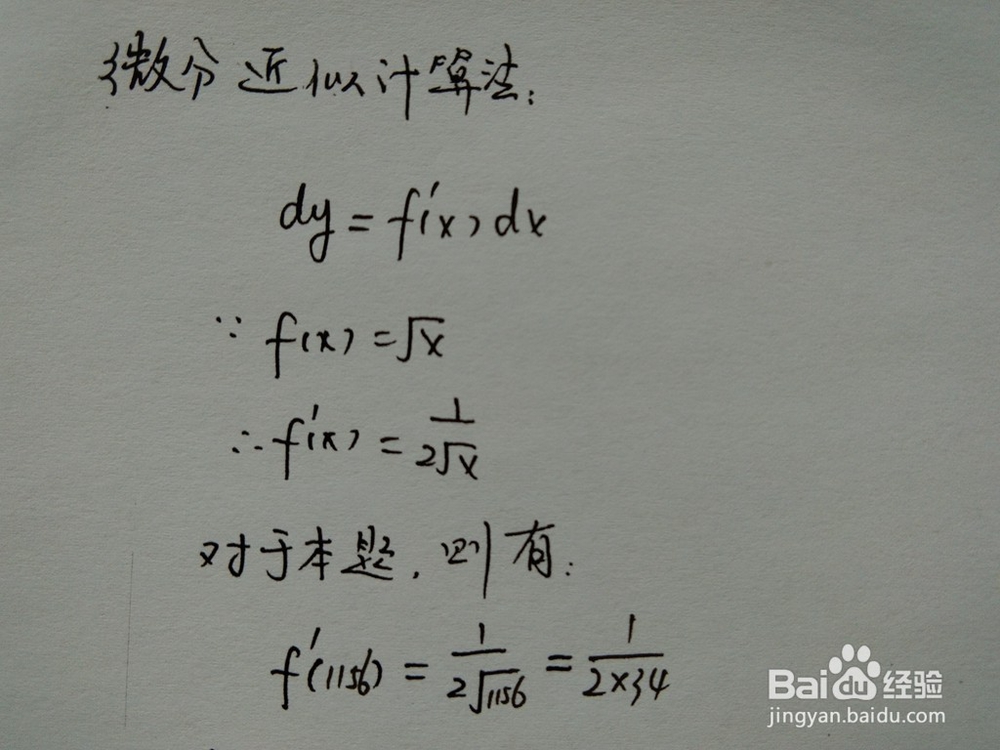 微分近似计算法:
dy = f'(x)dx
∵ f(x) = √x
∴ f'(x) = 1/(2√x)
对于本题, 则有:
f'(1156) = 1/(2√1156) = 1/(2×34)
Baidu经验
jingyan.baidu.com